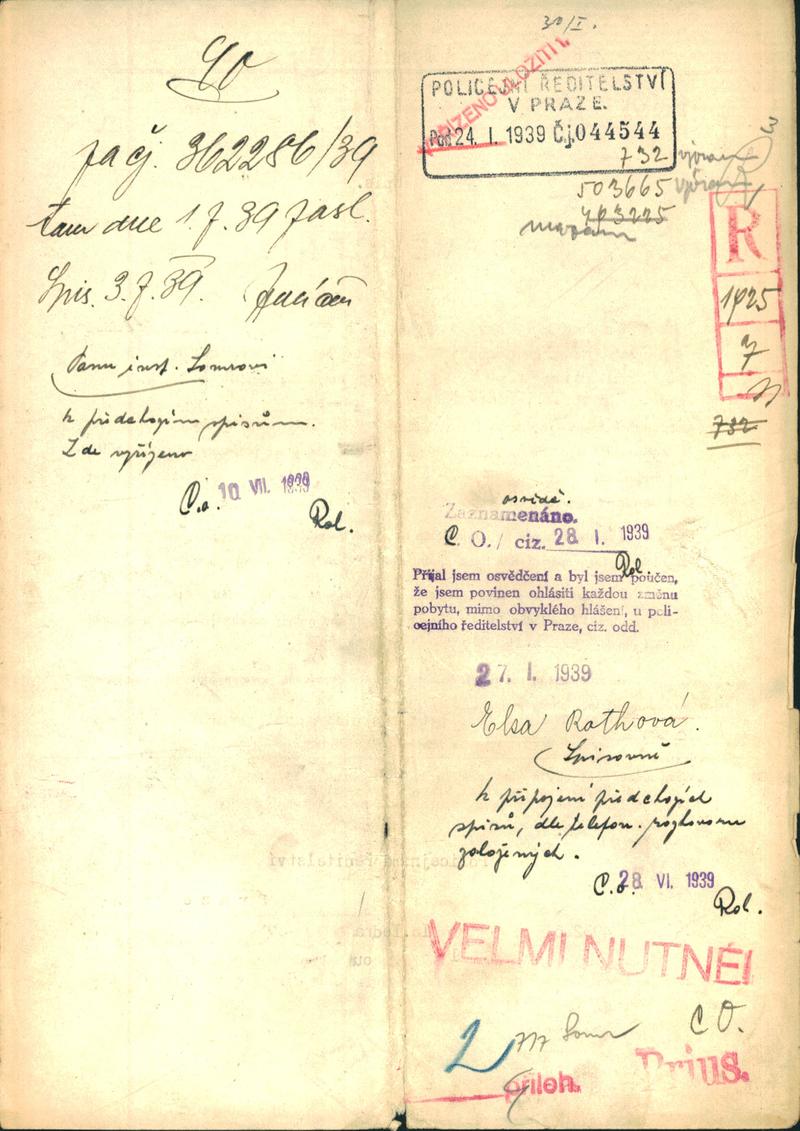 za čj. 362286/39
tam dne 1.7.39 zasl.
Spis. 3.7.39.
Panu insp.
k předchozím spisům.
Zde vyřízeno
C.o. 10 VII. 1939
Rol.
30/I.
POLICEJNÍ ŘEDITELSTVÍ
V PRAZE.
24. I. 1939 Čj. 044544
732
503665
R
1425
7
732
osvědč.
Zaznamenáno.
C. O./ ciz. 28 I. 1939
Rol.
Přijal jsem osvědčení a byl jsem poučen,
že jsem povinen ohlásiti každou změnu
pobytu, mimo obvyklého hlášení, u poli-
cejního ředitelství v Praze, ciz. odd.
27. I. 1939
Elsa Rothová.
Spisovně
k připojení předchozích
spisů, dle telefon. rozhovoru
založených.
C.o. 28 VI. 1939
Rol.
VELMI NUTNÉ!
C O.
2
příloh.
Prius.